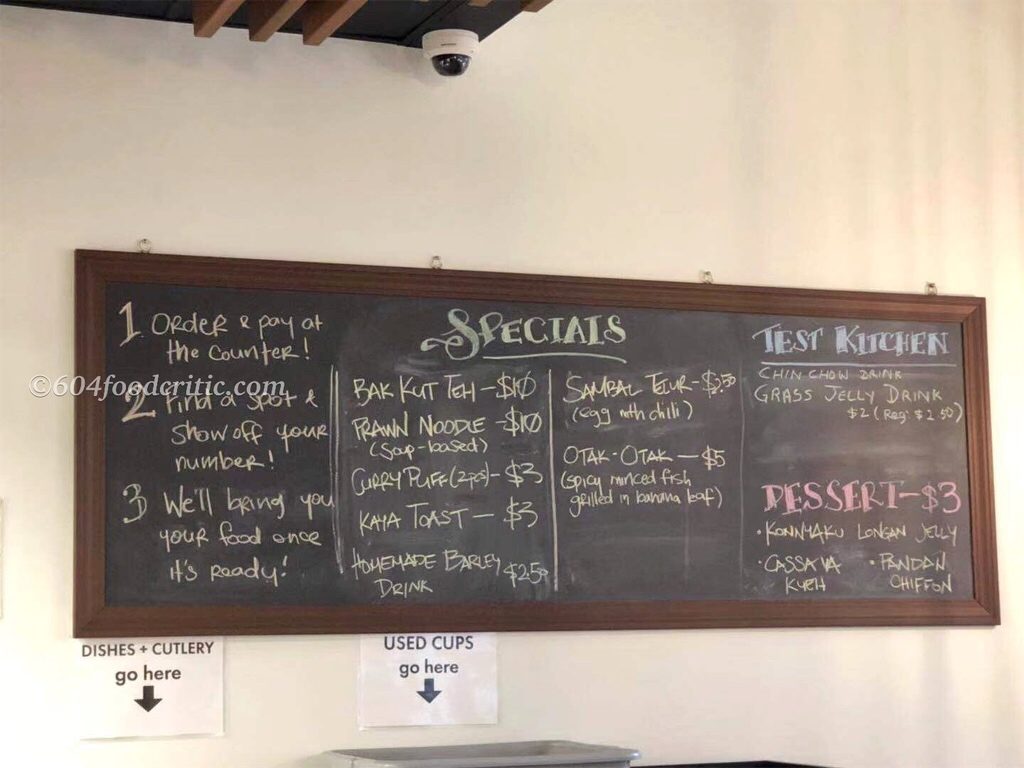 1. Order & pay at
the counter!
2 Find a spot &
show off your
number!
3 We'll bring you
your food once
it's ready!
SPECIALS
BAK KUT TEH — $10
PRAWN NOODLE — $10
(soup-based)
CURRY PUFF (2pcs) — $3
KAYA TOAST — $3
HOMEMADE BARLEY
DRINK $2.50
SAMBAL TELUR — $2.50
(egg with chili)
OTAK-OTAK — $5
(spicy minced fish
grilled in banana leaf)
TEST KITCHEN
CHIN CHOW DRINK
GRASS JELLY DRINK
$2 (Reg. $2.50)
DESSERT — $3
• KONNYAKU LONGAN JELLY
• CASSAVA
KUEH
• PANDAN
CHIFFON
©604foodcritic.com
DISHES + CUTLERY
go here
USED CUPS
go here